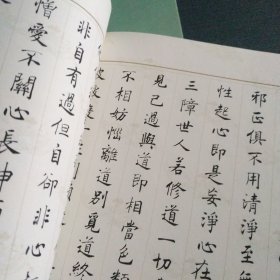 邪正俱不用清淨至無
性起心即是妄淨心在
三障世人若修道一切
見己過與道即相當色類
不相妨惱離道別覓道終
非自有過但自卻非心
憎愛不關心長伸